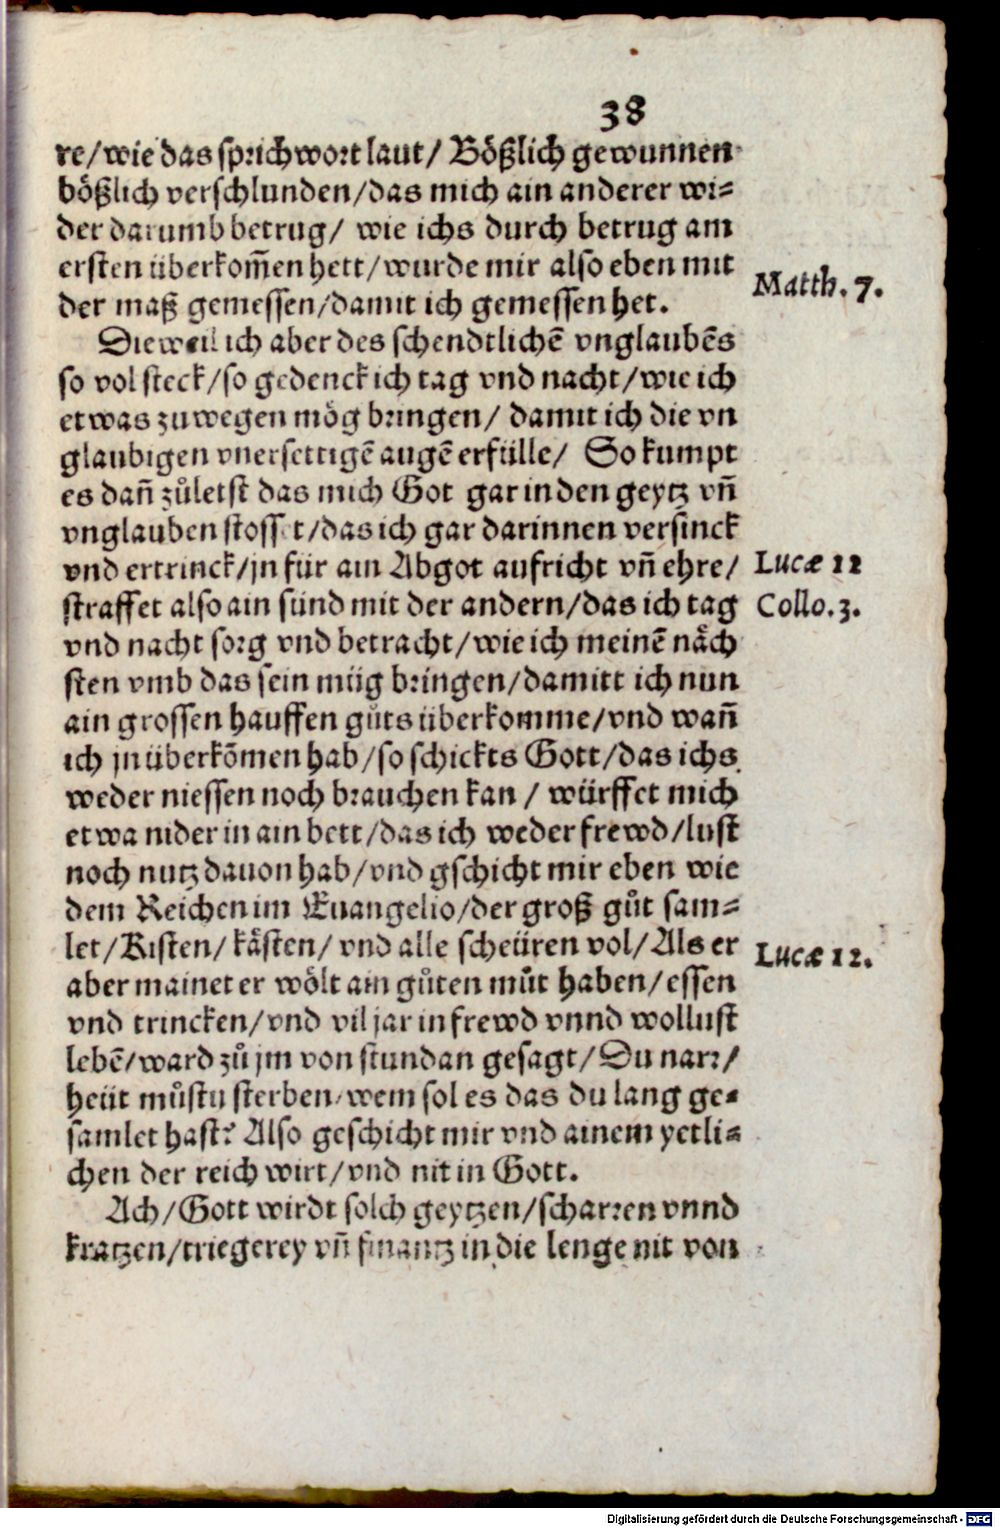 38
re/wie das sprichwort laut/ Bößlich gewunnen
bößlich verschlunden/das mich ain anderer wi=
der darumb betrug/ wie ichs durch betrug am
ersten überkom̃en hett/wurde mir also eben mit
der maß gemessen/damit ich gemessen het.
Matth. 7.
Dieweil ich aber des schendtlichẽ vnglaubẽs
so vol steck/so gedenck ich tag vnd nacht/wie ich
etwas zuwegen mög bringen/ damit ich die vn
glaubigen vnersettigẽ augẽ erfülle/ So kumpt
es dañ zůletst das mich Got gar in den geytz vñ
vnglauben stosset/das ich gar darinnen versinck
vnd ertrinck/jn für ain Abgot aufricht vñ ehre/
Lucæ 12
straffet also ain sünd mit der andern/das ich tag
Collo. 3.
vnd nacht sorg vnd betracht/wie ich meinẽ nåch
sten vmb das sein müg bringen/damitt ich nun
ain grossen hauffen gůts überkomme/vnd wañ
ich jn überkõmen hab/so schickts Gott/das ichs
weder niessen noch brauchen kan/ würffet mich
etwa nider in ain bett/das ich weder frewd/lust
noch nutz dauon hab/vnd gschicht mir eben wie
dem Reichen im Euangelio/der groß gůt sam=
let/Kisten/ kåsten/ vnd alle scheüren vol/Als er
Lucæ 12.
aber mainet er wölt ain gůten můt haben/essen
vnd trincken/vnd vil jar in frewd vnnd wollust
lebẽ/ward zů jm von stundan gesagt/Du narr/
heüt můstu sterben/wem sol es das du lang ge=
samlet hast? Also geschicht mir vnd ainem yetli=
chen der reich wirt/vnd nit in Gott.
Ach/Gott wirdt solch geytzen/scharren vnnd
kratzen/triegerey vñ finantz in die lenge nit von
Digitalisierung gefördert durch die Deutsche Forschungsgemeinschaft - DFG